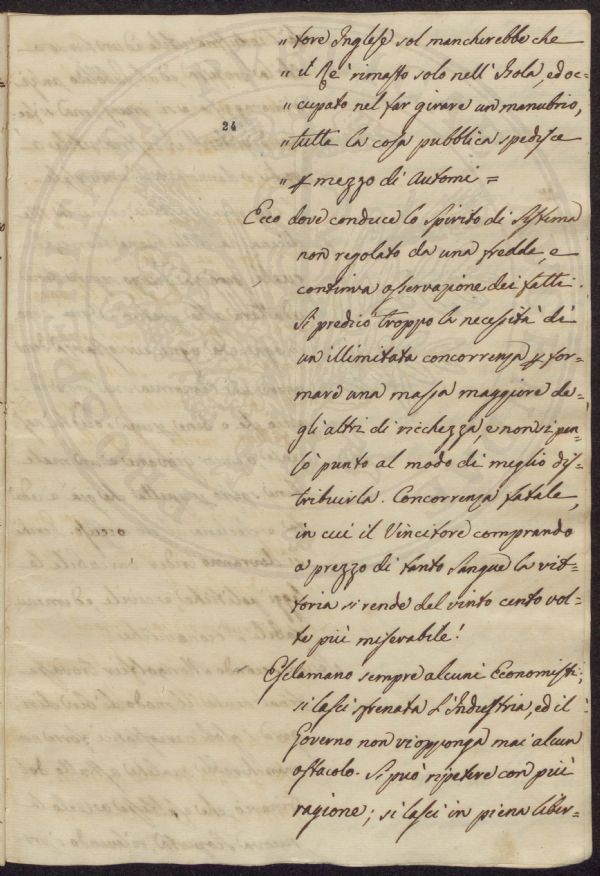 „ tore Inglese sol mancherebbe che
„ il Rè rimasto solo nell'Isola, ed oc=
„ cupato nel far girare un manubrio,
24
„ tutta la cosa pubblica spedisce
„ p mezzo di Automi =
Ecco dove conduce lo spirito di sistema
non regolato da una fredda, e
continua osservazione dei fatti.
Si predicò troppo la necessità di
un illimitata concorrenza p for=
mare una massa maggiore de=
gli altri di ricchezza, e non si pen=
sò punto al modo di meglio dis=
tribuirla. Concorrenza fatale,
in cui il Vincitore comprando
a prezzo di tanto sangue la vit=
toria si rende del vinto cento vol=
te più miserabile!
Esclamano sempre alcuni Economisti;
si lasci sfrenata l'Industria, ed il
Governo non vi opponga mai alcun
ostacolo. Si può ripetere con più
ragione; si lasci in piena liber=